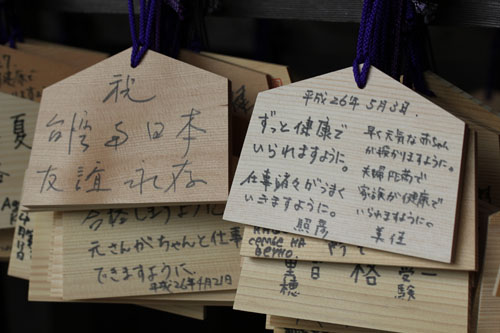 祝
台灣与日本
友誼永存
平成26年5月3日.
ずっと健康で
いられますように。
仕事諸々がうまく
いきますように。
照彦
早く元気な赤ちゃん
が授かりますように。
夫婦円満で
家族が健康で
いられますように。
美佳
合格しますように
元さんがちゃんと仕事
できますように。
平成26年4月21日
夏